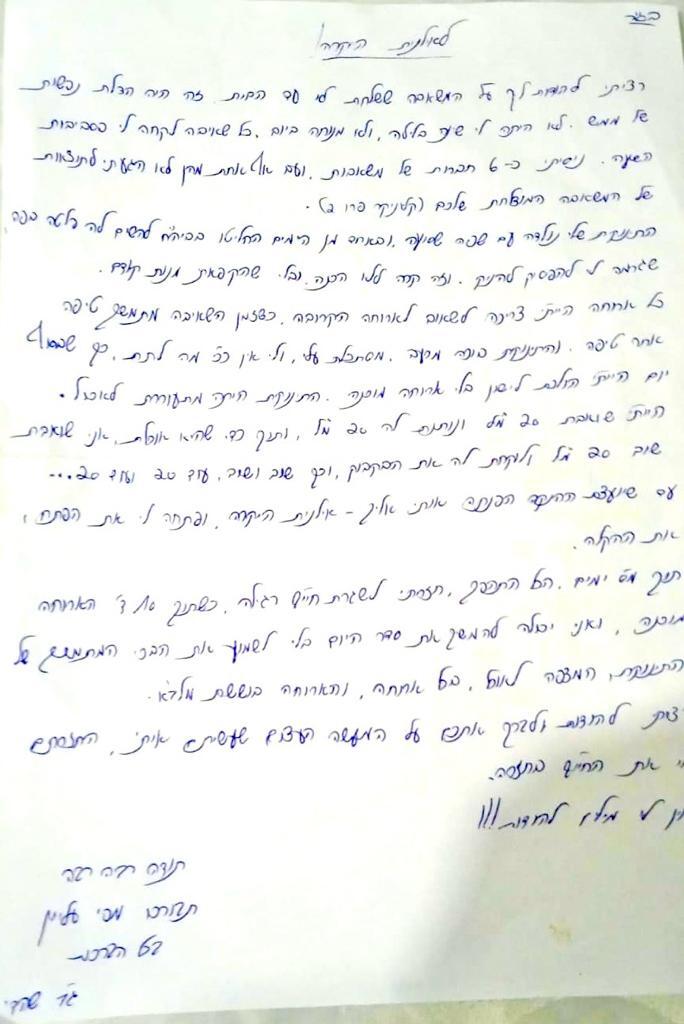 בס"ד
לאילנית היקרה!
רציתי להודות לך על המשאבה ששלחת לי עד הבית. זה היה הצלת נפשות
של ממש. לא היתה לי שינה בלילה, ולא מנוחה ביום, כל שאיבה לקחה לי בסביבות
השעה. ניסיתי כ-6 חברות של משאבות, ועם אף אחת מהן לא הגעתי לתוצאות
של המשאבה המוצלחת שלכם (קלניקר פרו 2).
התינוקת שלי נולדה עם שפה שסועה, ובאחד מן הימים החליטו בביה"ח להשים לה פלטה בפה,
שגרמה לי להפסיק להניק. וזה קרה ללא הכנה ובלי שהקפאתי מנות קודם.
כל ארוחה הייתי צריכה לשאוב לארוחה הקרובה, כשזמן השאיבה מתמשך טיפה
אחר טיפה. והתינוקת בוכה מרעב, מסתכלת עלי, ולי אין כ"כ מה לתת, כך שבסוף
יום הייתי הולכת לישון בלי ארוחה מוכנה. התינוקת היתה מתעוררת לאכול.
הייתי שואבת 20 מ"ל ונותנת לה 20 מ"ל, ותוך כדי שהיא אוכלת, אני שואבת
שוב 20 מ"ל ולוקחת לה את הבקבוק, וכך שוב ושוב, עוד 20 ועוד 20...
עד שיועצת ההנקה הפנתה אותי אליך - אילנית היקרה, ופתחה לי את הפתח,
את ההקלה.
תוך מס' ימים, הכל התהפך, חזרתי לשגרת חיים רגילה, כשתוך 10 ד' הארוחה
מוכנה, ואני יכולה להמשיך את סדר היום בלי לשמוע את הבכי המתמשך של
התינוקת, המצפה לאוכל, בכל ארוחה, והארוחה בוששת מלבא.
רציתי להודות ולברך אתכם על המעשה העצום שעשיתם איתי, החזרתם
לי את החיים בחזרה.
אין לי מילים להודות!!!
תודה רבה רבה
תבורכו מפי עליון
בכל הברכות